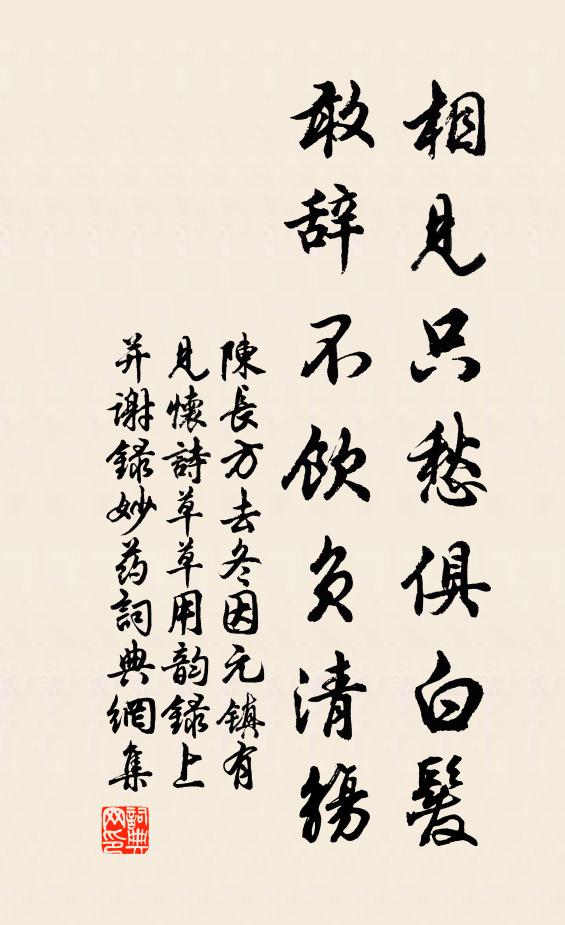 相見只愁俱白髮
敢辞不飲負清觴
陳長方去冬因元鎮有
見懷詩草草用韵録上
并謝録妙药詞典網集
詞典
网印